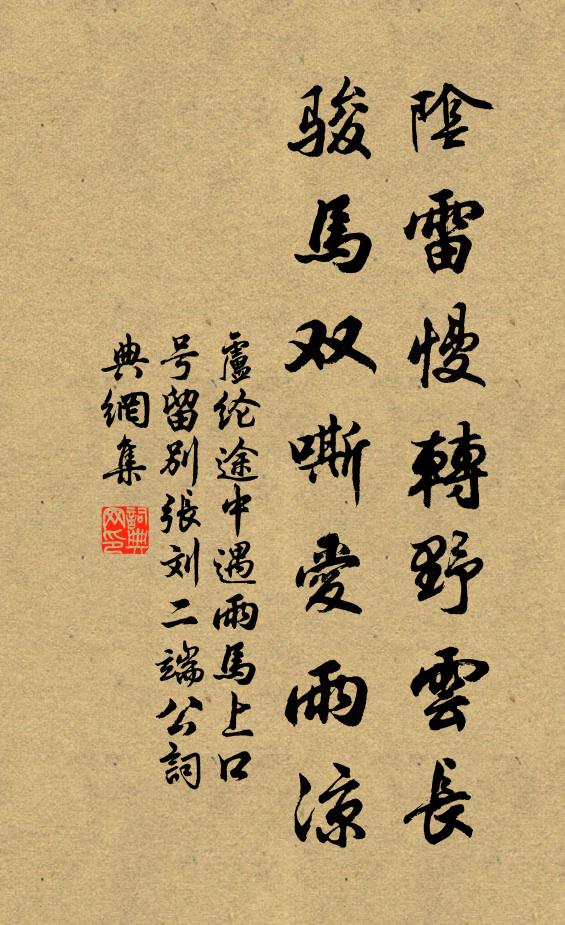 陰雷慢轉野雲長
駿馬双嘶愛雨凉
盧纶途中遇雨馬上口
号留别張刘二端公詞
典網集
詞典网印